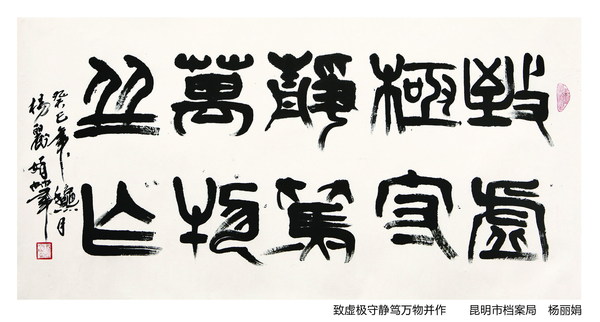 致虛
極守
靜篤
萬物
並作
癸巳年臘月
楊麗娟書
致虚极守静笃万物并作 昆明市档案局 杨丽娟